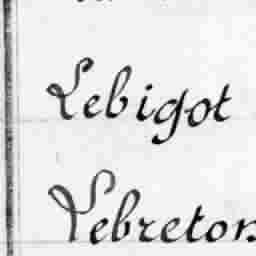 Lebigot
Lebreton